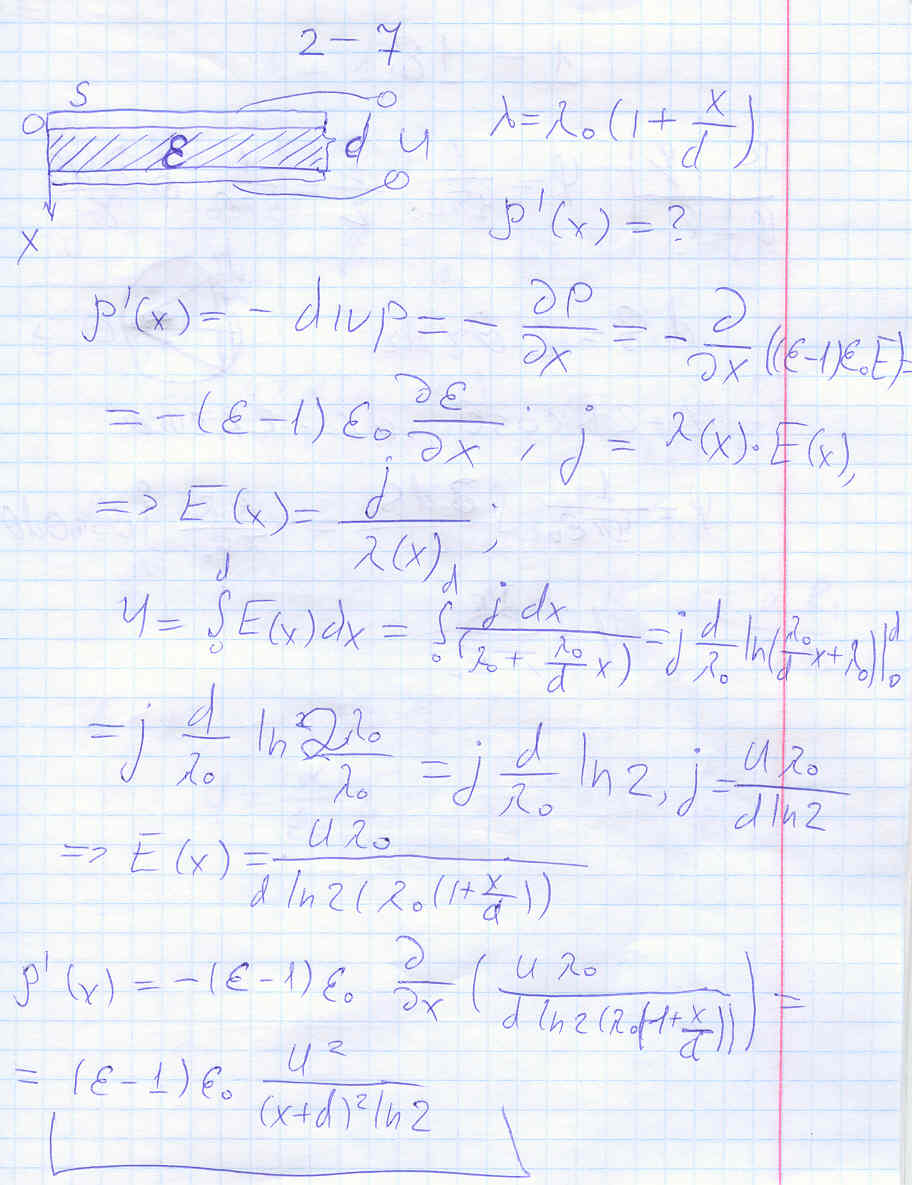 2 – 7
S
O
ε
d
U
X
λ = λ₀(1 + x/d)
ρ'(x) = ?
ρ'(x) = - div P = - ∂P/∂x = - ∂/∂x ((ε-1)ε₀E) =
= -(ε-1) ε₀ ∂ε/∂x ; j = λ(x)·E(x),
=> E(x) = j/λ(x) ;
U = ∫₀ᵈ E(x)dx = ∫₀ᵈ j dx/(λ₀ + λ₀/d x) = j d/λ₀ ln(λ₀/d x + λ₀)|₀ᵈ
= j d/λ₀ ln 2λ₀/λ₀ = j d/λ₀ ln 2, j = Uλ₀/(d ln 2)
=> E(x) = Uλ₀/(d ln 2(λ₀(1 + x/d)))
ρ'(x) = -(ε-1) ε₀ ∂/∂x (Uλ₀/(d ln 2(λ₀(1 + x/d)))) =
= (ε-1)ε₀ U²/((x+d)² ln 2)